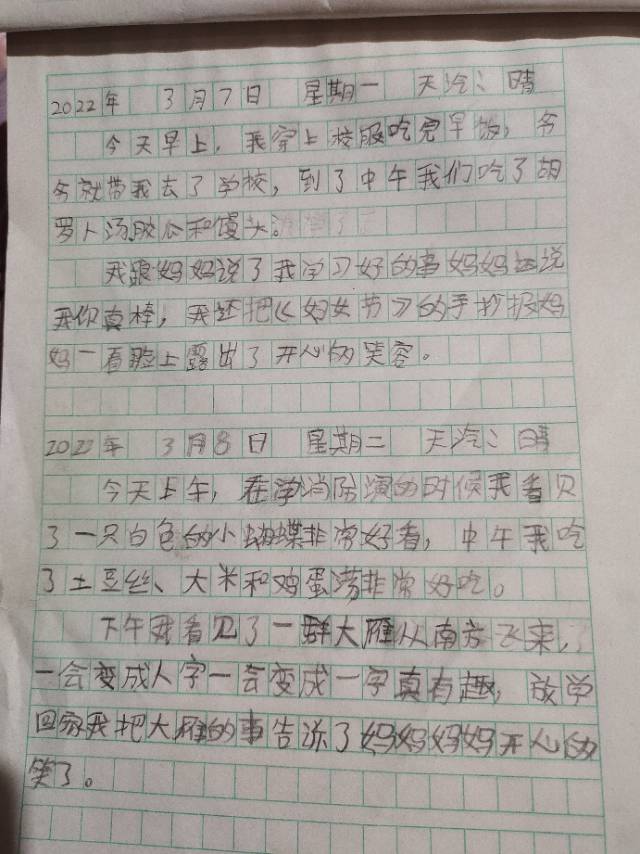 2022年 3月7日 星期一 天汽:晴
今天早上,我穿上校服吃完早饭,爷
爷就带我去了学校,到了中午我们吃了胡
罗卜汤胶瓜和馒头。
我跟妈妈说了我学习好的事妈妈还说
我你真棒,我还把《妇女节》的手抄报妈
妈一看脸上露出了开心的笑容。
2022年 3月8日 星期二 天汽:晴
今天上午,在学消防演的时候我看贝
了一只白色的小蝴蝶非常好看,中午我吃
了土豆丝、大米和鸡蛋汤非常好吃。
下午我看见了一群大雁从南方飞来,
一会变成人字一会变成一字真有趣,放学
回家我把大雁的事告诉了妈妈妈妈开心的
笑了。